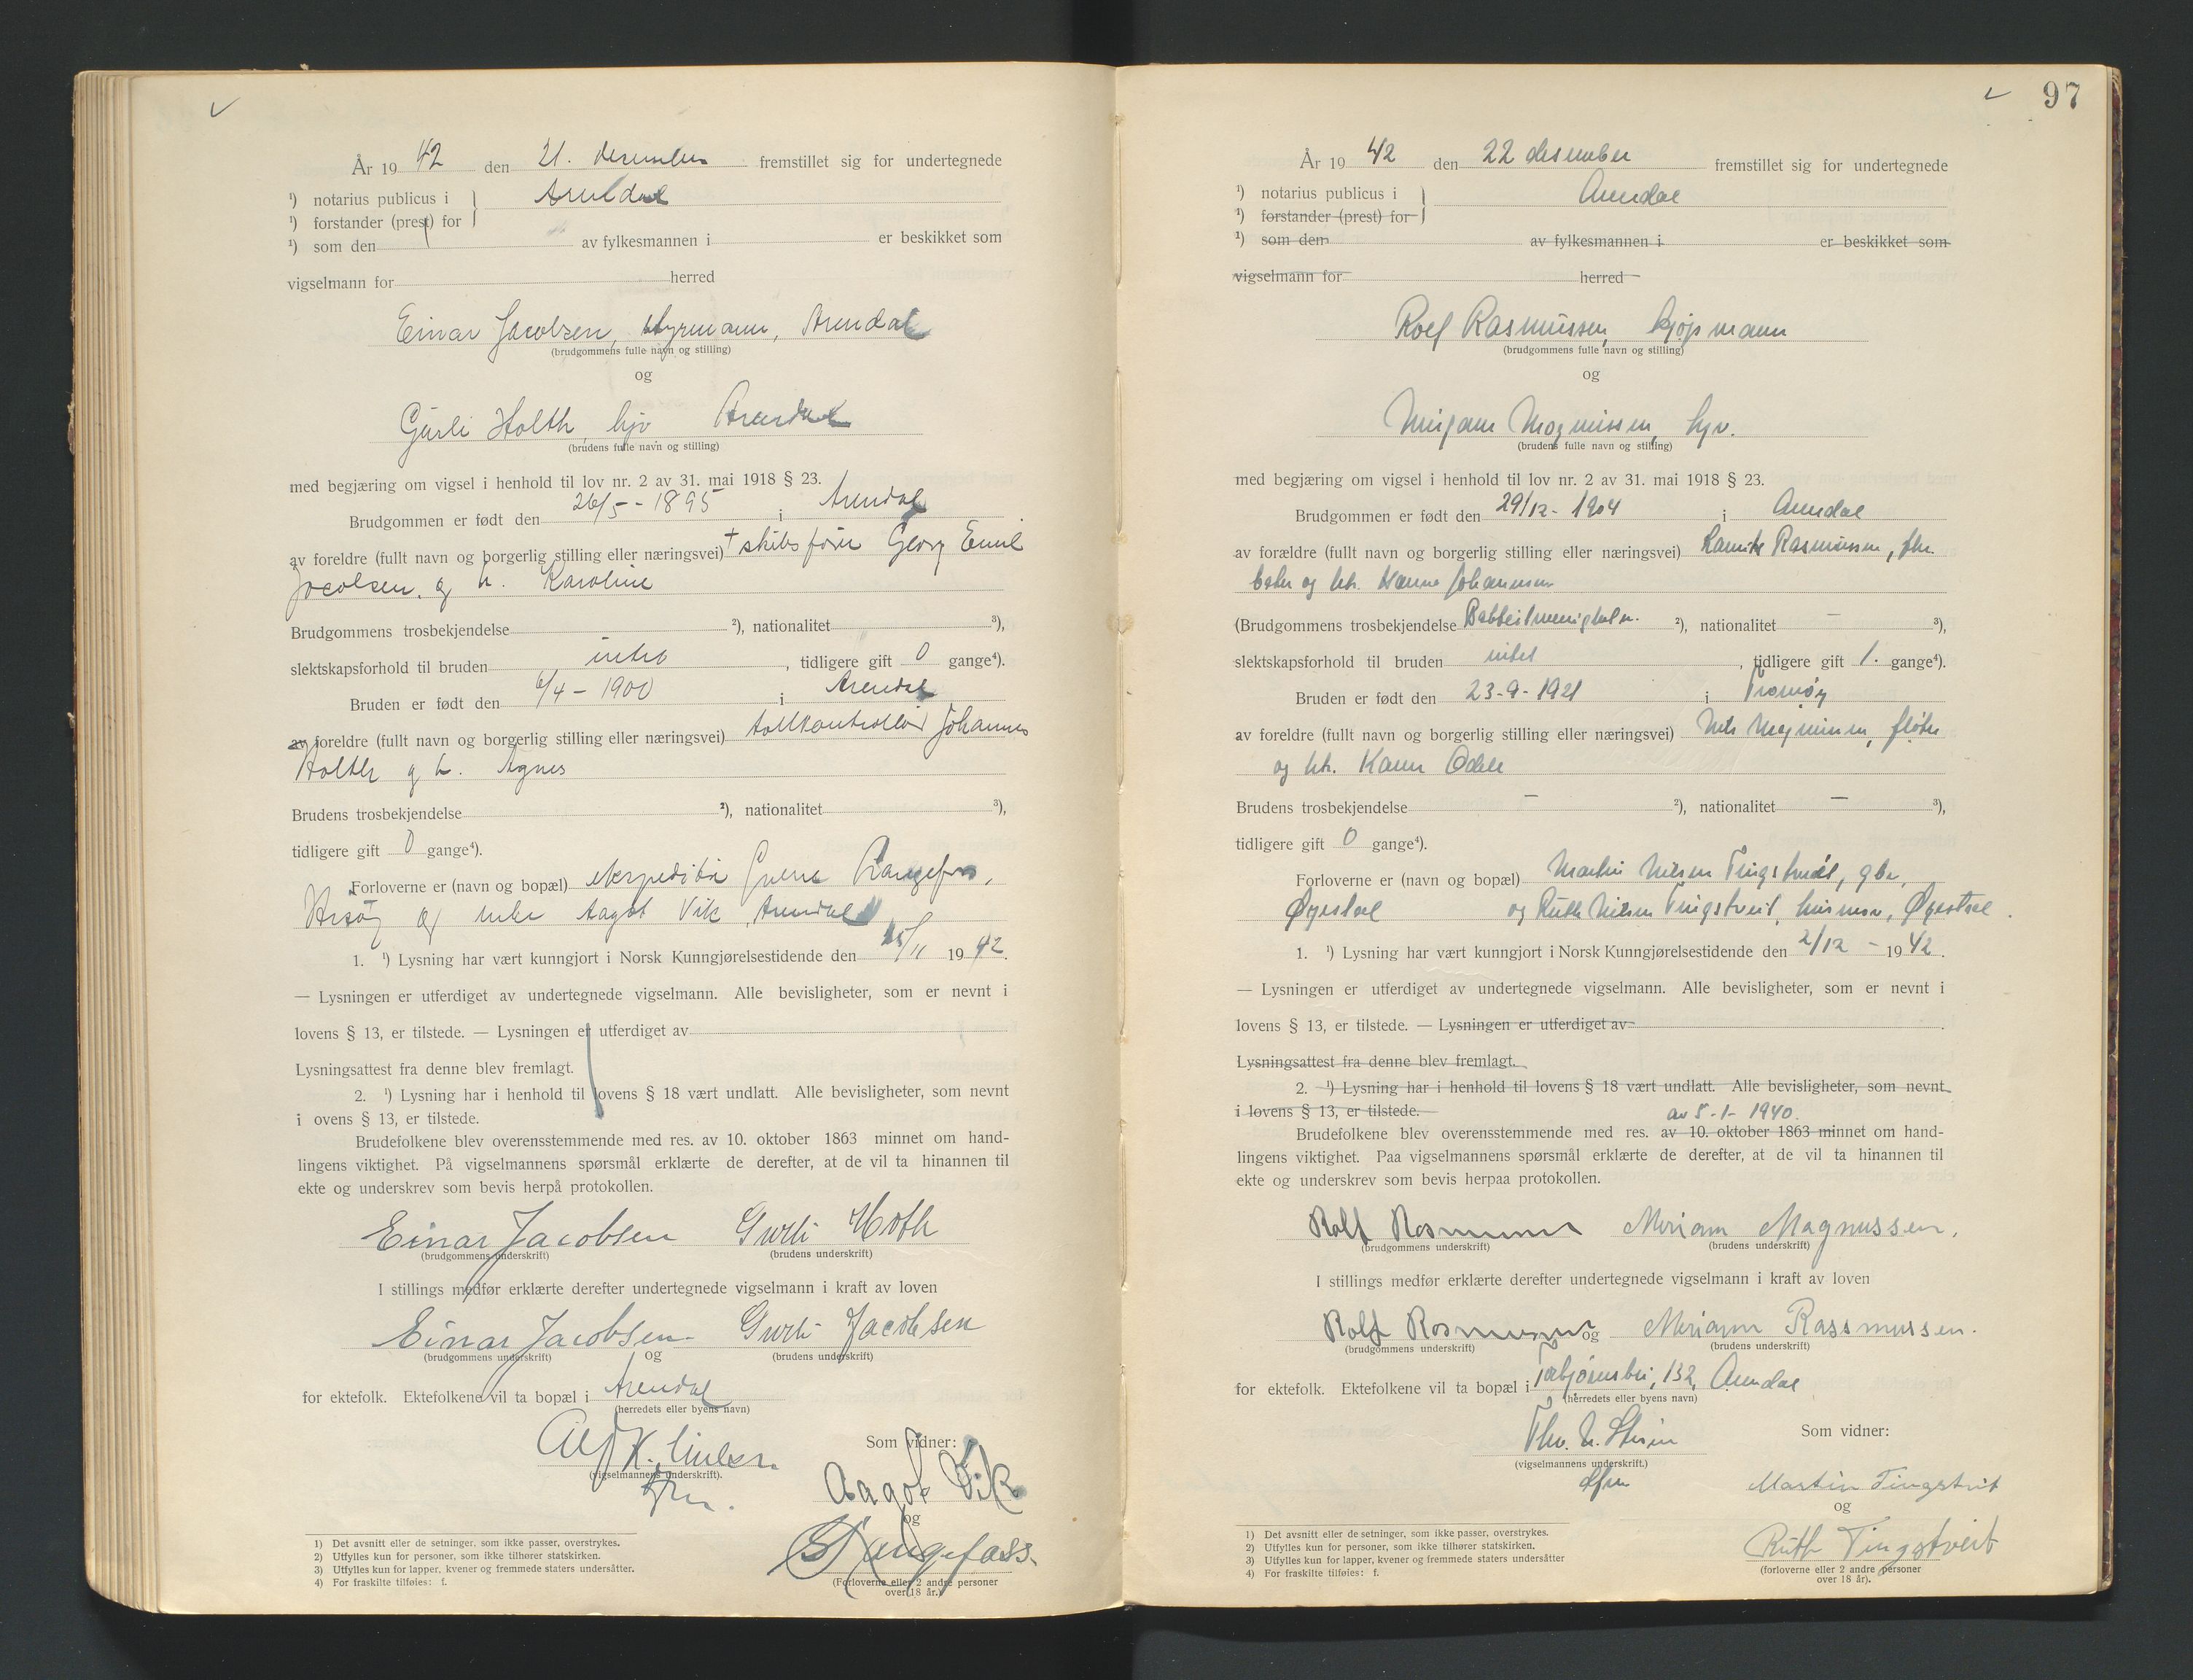 År 19 42 den 21. desember fremstillet sig for undertegnede
¹) notarius publicus i } Arendal
¹) forstander (prest) for
¹) som den av fylkesmannen i er beskikket som
vigselmann for herred
Einar Jacobsen, styrmann, Arendal
(brudgommens fulle navn og stilling)
og
Gurli Holth hjv Arendal
(brudens fulle navn og stilling)
med begjæring om vigsel i henhold til lov nr. 2 av 31. mai 1918 § 23.
Brudgommen er født den 26/5 - 1895 i Arendal
av foreldre (fullt navn og borgerlig stilling eller næringsvei) + skibsfører Georg Emil
Jacobsen. og h. Karoline
Brudgommens trosbekjendelse ²), nationalitet ³),
slektskapsforhold til bruden intet, tidligere gift 0 gange⁴).
Bruden er født den 6/4 - 1900 i Arendal
av foreldre (fullt navn og borgerlig stilling eller næringsvei) tollkontrollør Johannes
Holth og h. Agnes
Brudens trosbekjendelse ²), nationalitet ³),
tidligere gift 0 gange⁴).
Forloverne er (navn og bopæl) ekspeditør Langefoss,
Hisøy og Aagot Vik, Arendal
1. ¹) Lysning har vært kunngjort i Norsk Kunngjørelsestidende den /11 1942.
— Lysningen er utferdiget av undertegnede vigselmann. Alle bevisligheter, som er nevnt i
lovens § 13, er tilstede. — Lysningen er utferdiget av
Lysningsattest fra denne blev fremlagt.
2. ¹) Lysning har i henhold til lovens § 18 vært undlatt. Alle bevisligheter, som nevnt
i ovens § 13, er tilstede.
Brudefolkene blev overensstemmende med res. av 10. oktober 1863 minnet om hand-
lingens viktighet. På vigselmannens spørsmål erklærte de derefter, at de vil ta hinannen til
ekte og underskrev som bevis herpå protokollen.
Einar Jacobsen Gurli Holth
(brudgommens underskrift) (brudens underskrift)
I stillings medfør erklærte derefter undertegnede vigselmann i kraft av loven
Einar Jacobsen Gurli Jacobsen
(brudgommens underskrift) og (brudens underskrift)
for ektefolk. Ektefolkene vil ta bopæl i Arendal
(herredets eller byens navn)
Alf K.
Som vidner:
(vigselmannens underskrift).
Aagot Vik
og
Langefoss.
(Forloverne eller 2 andre personer
over 18 år.)
1) Det avsnitt eller de setninger, som ikke passer, overstrykes.
2) Utfylles kun for personer, som ikke tilhører statskirken.
3) Utfylles kun for lapper, kvener og fremmede staters undersåtter.
4) For fraskilte tilføies: f.
97
År 19 42 den 22 desember fremstillet sig for undertegnede
¹) notarius publicus i } Arendal
¹) forstander (prest) for
¹) som den av fylkesmannen i er beskikket som
vigselmann for herred
Rolf Rasmussen, kjøpmann
(brudgommens fulle navn og stilling)
og
Mirjam Magnussen, hjv.
(brudens fulle navn og stilling)
med begjæring om vigsel i henhold til lov nr. 2 av 31. mai 1918 § 23.
Brudgommen er født den 29/12- 1904 i Arendal
av forældre (fullt navn og borgerlig stilling eller næringsvei) Rasmussen,
og h. Hanna Johannesen
(Brudgommens trosbekjendelse Babtistmenigheten. ²), nationalitet — ³),
slektskapsforhold til bruden intet, tidligere gift 1. gange⁴).
Bruden er født den 23-9-1921 i Tromøy
av foreldre (fullt navn og borgerlig stilling eller næringsvei) Nils Magnussen, fløter
og h. Karen Odele
Brudens trosbekjendelse — ²), nationalitet — ³),
tidligere gift 0 gange⁴).
Forloverne er (navn og bopæl) Martin Nilsen Tingstveit, gbr,
Øyestad og Ruth Nilsen Tingstveit, husmor, Øyestad.
1. ¹) Lysning har vært kunngjort i Norsk Kunngjørelsestidende den 2/12 - 1942.
— Lysningen er utferdiget av undertegnede vigselmann. Alle bevisligheter, som er nevnt i
lovens § 13, er tilstede. — Lysningen er utferdiget av
Lysningsattest fra denne blev fremlagt.
2. ¹) Lysning har i henhold til lovens § 18 vært undlatt. Alle bevisligheter, som nevnt
i lovens § 13, er tilstede.
av 5-1-1940.
Brudefolkene blev overensstemmende med res. av 10. oktober 1863 minnet om hand-
lingens viktighet. Paa vigselmannens spørsmål erklærte de derefter, at de vil ta hinannen til
ekte og underskrev som bevis herpaa protokollen.
Rolf Rasmussen Miriam Magnussen.
(brudgommens underskrift) (brudens underskrift)
I stillings medfør erklærte derefter undertegnede vigselmann i kraft av loven
Rolf Rasmussen og Miriam Rassmussen.
(brudgommens underskrift) (brudens underskrift)
for ektefolk. Ektefolkene vil ta bopæl i Torbjørnsbu, 132, Arendal
(herredets eller byens navn)
Thv.
Som vidner:
(vigselmannens underskrift.)
Martin Tingstveit
og
Ruth Tingstveit
(forloverne eller 2 andre personer
over 18 år).
1) Det avsnitt eller de setninger, som ikke passer, overstrykes.
2) Utfylles kun for personer, som ikke tilhører statskirken.
3) Utfylles kun for lapper, kvener og fremmede staters undersåtter
4) For fraskilte tilføies: f.